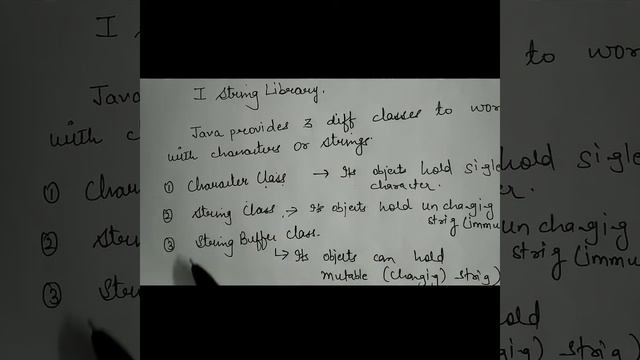 I String Library.
Java provides 3 diff classes to wor
with characters or strings.
① Character Class → Its objects hold single
character.
② String Class → Its objects hold un changing
strig (immu
③ String Buffer class.
↳ Its objects can hold
mutable (changig) strig)